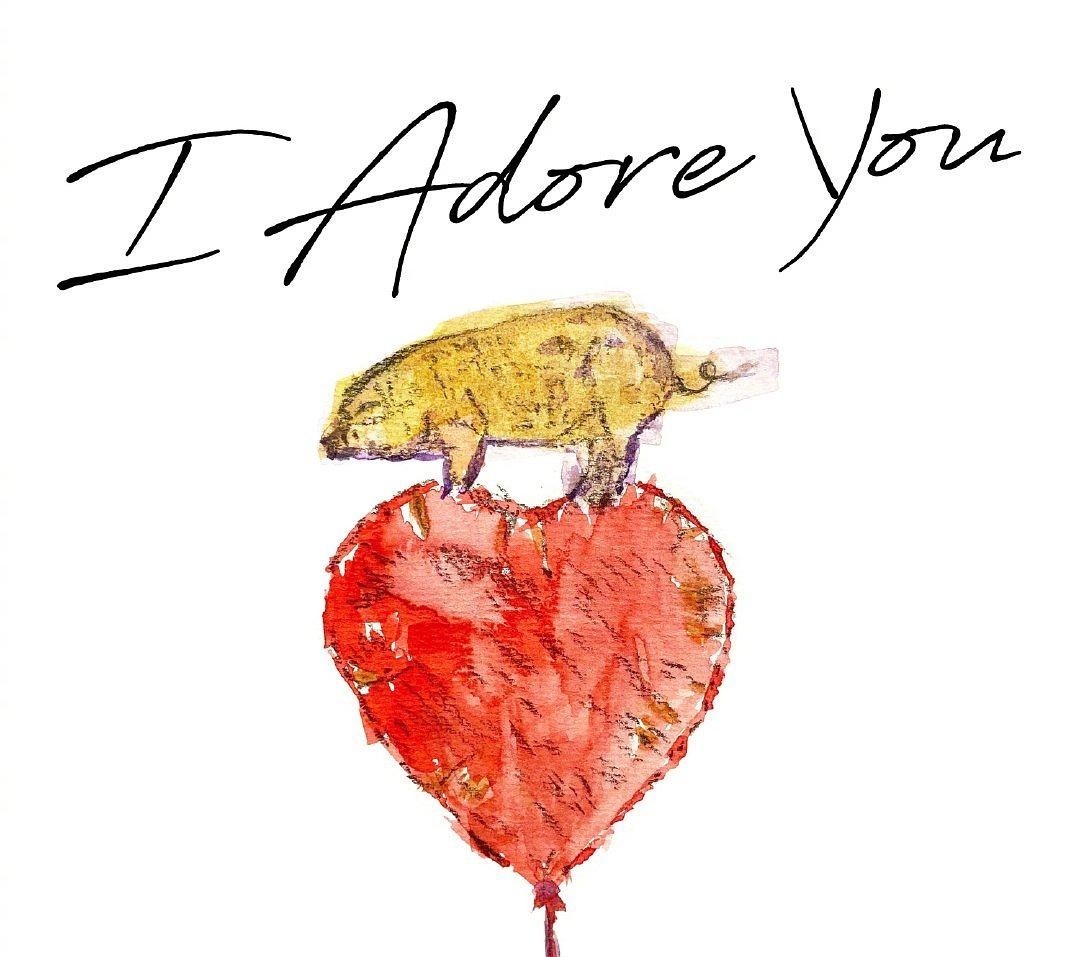 I Adore You